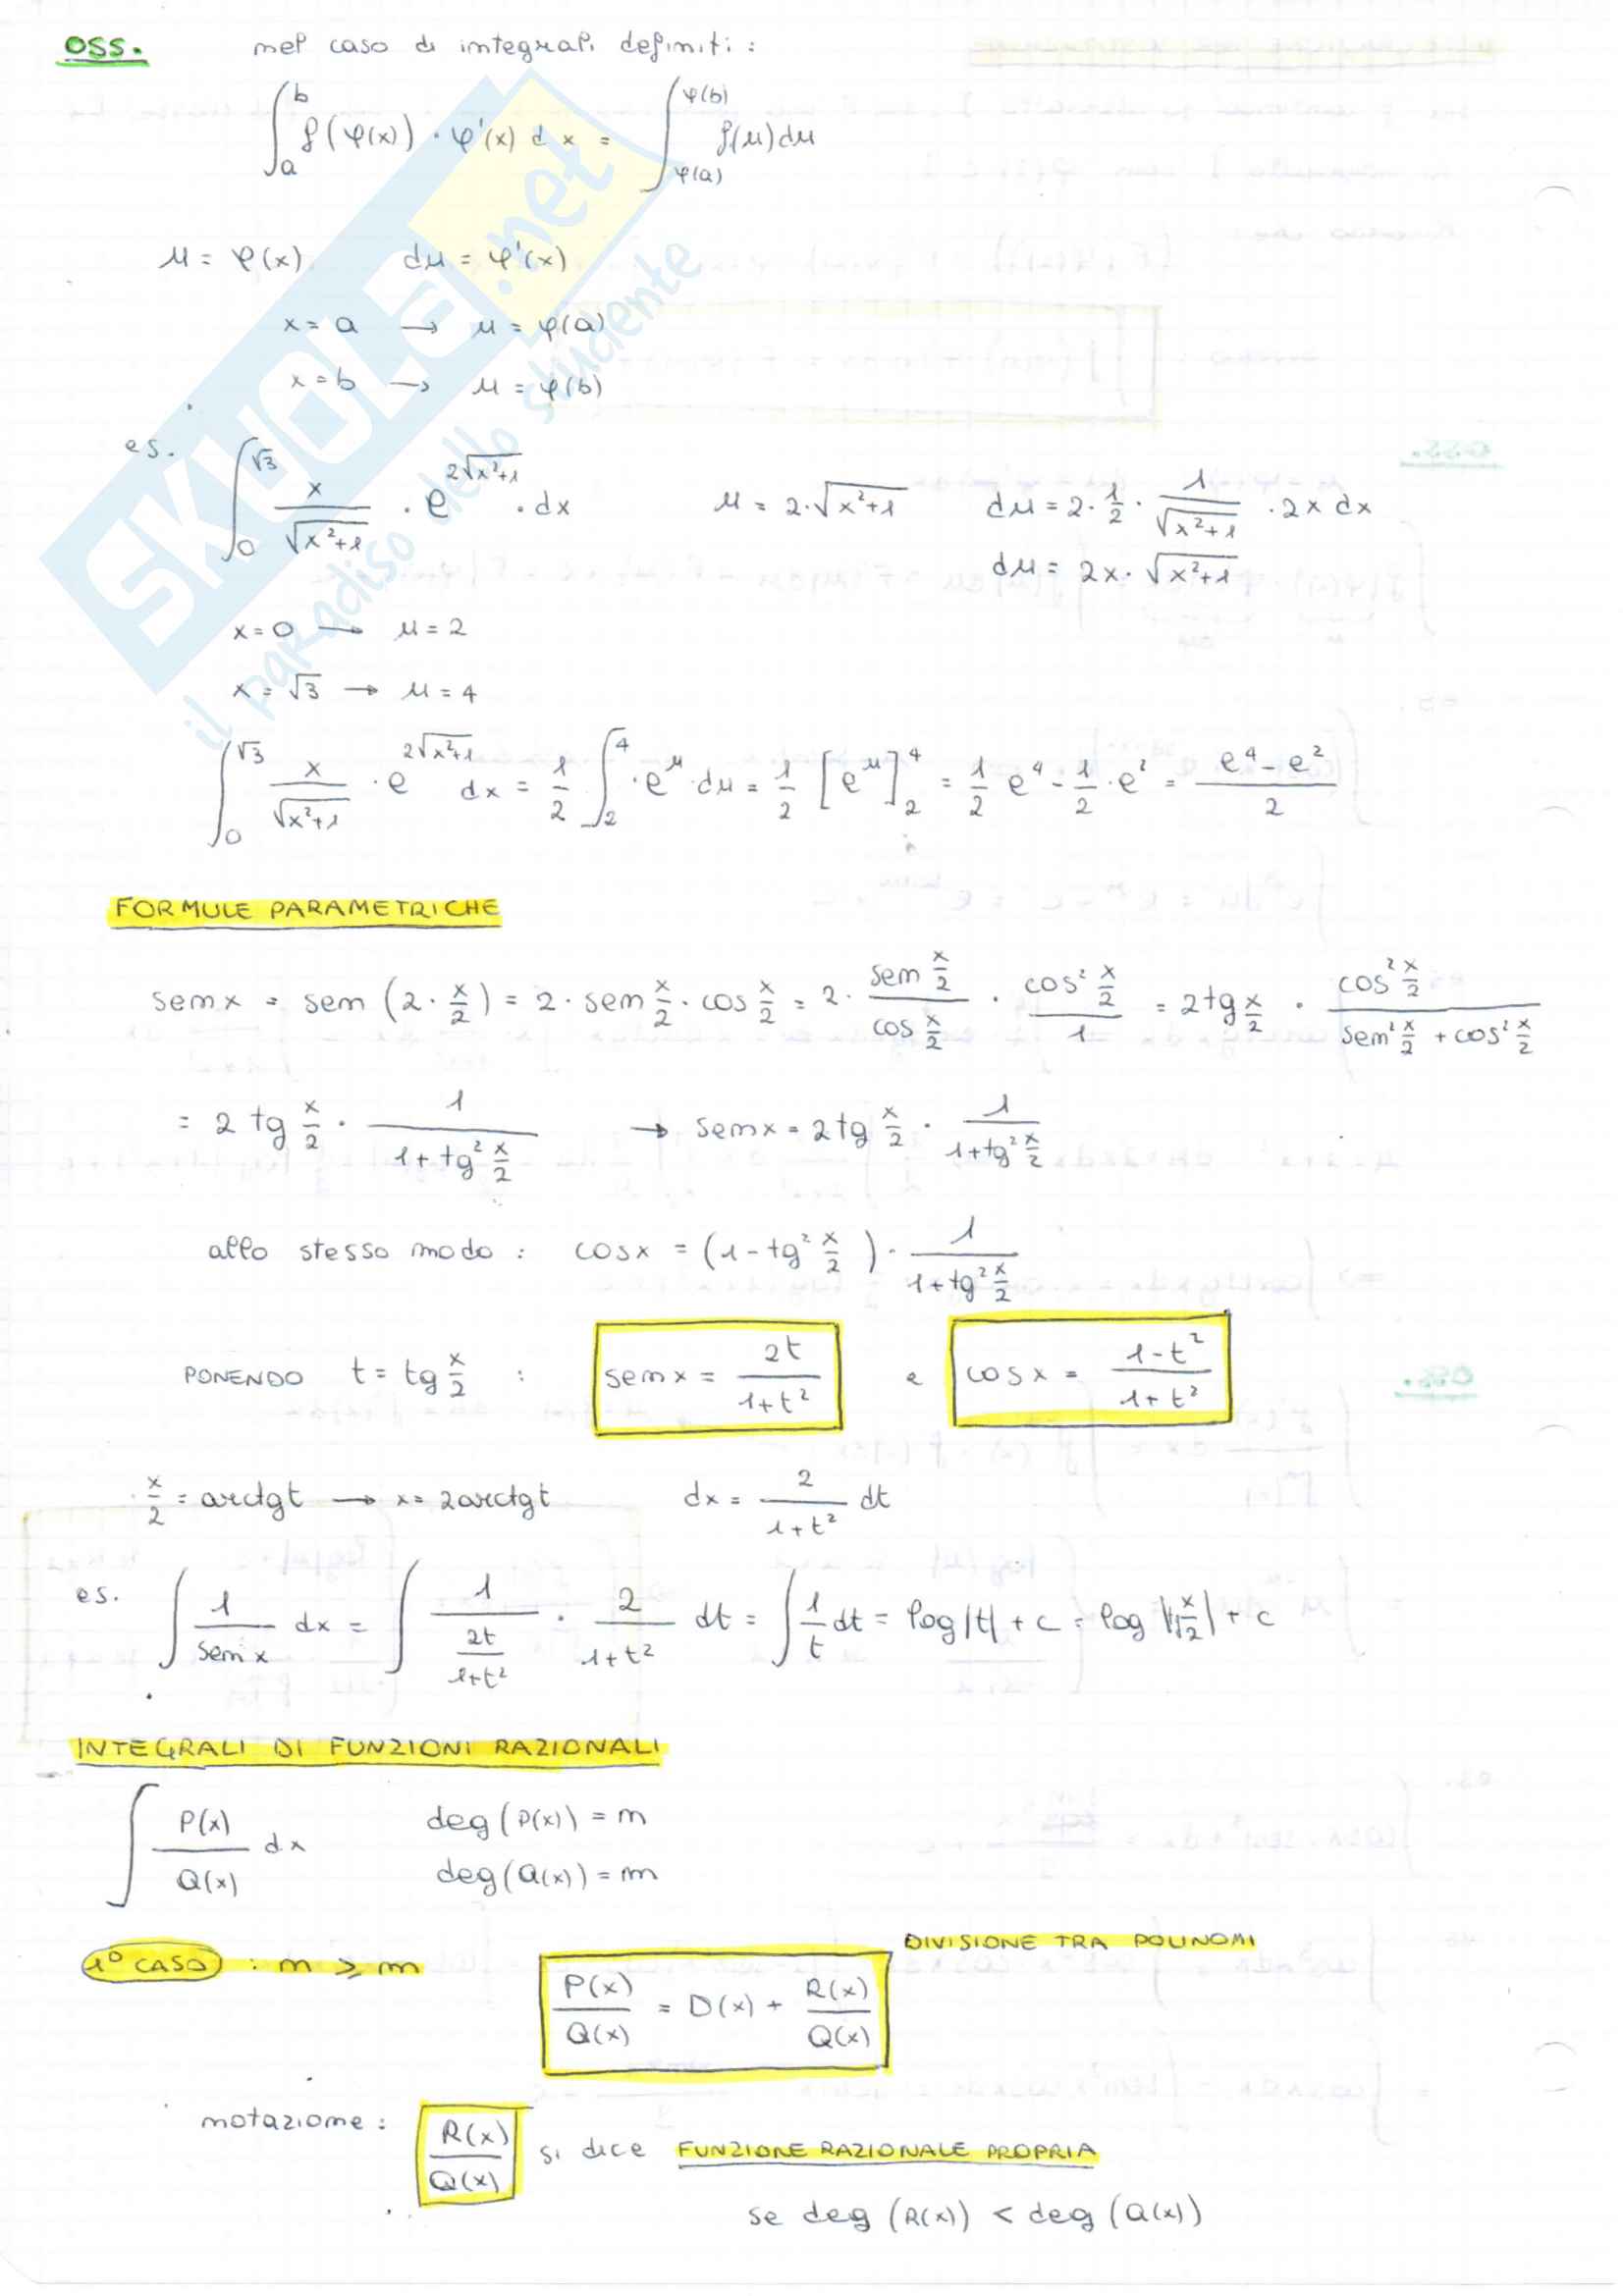 OSS. nel caso di integrali definiti :
∫_a^b f(φ(x)) · φ'(x) dx = ∫_φ(a)^φ(b) f(u)du
u = φ(x) du = φ'(x)
x = a → u = φ(a)
x = b → u = φ(b)
es. ∫_0^√3 x/√(x²+1) · e^(2√(x²+1)) · dx u = 2·√(x²+1) du = 2·1/2·1/√(x²+1) ·2x dx
du = 2x·√(x²+1)
x=0 → u=2
x=√3 → u=4
∫_0^√3 x/√(x²+1) · e^(2√(x²+1)) dx = 1/2 ∫_2^4 ·e^u·du = 1/2 [e^u]_2^4 = 1/2 e⁴ - 1/2·e² = (e⁴-e²)/2
FORMULE PARAMETRICHE
sen x = sen (2·x/2) = 2·sen x/2·cos x/2 = 2· (sen x/2)/(cos x/2) · (cos² x/2)/1 = 2tg x/2 · (cos² x/2)/(sen² x/2 + cos² x/2)
= 2 tg x/2 · 1/(1+tg² x/2) → sen x = 2tg x/2 · 1/(1+tg² x/2)
allo stesso modo : cos x = (1-tg² x/2) · 1/(1+tg² x/2)
PONENDO t = tg x/2 : sen x = 2t/(1+t²) e cos x = (1-t²)/(1+t²)
x/2 = arctg t → x = 2arctg t dx = 2/(1+t²) dt
es. ∫ 1/sen x dx = ∫ 1/(2t/(1+t²)) · 2/(1+t²) dt = ∫ 1/t dt = log|t| + c = log |tg x/2| + c
INTEGRALI DI FUNZIONI RAZIONALI
∫ P(x)/Q(x) dx deg(P(x)) = n
deg(Q(x)) = m
1° CASO : n ≥ m P(x)/Q(x) = D(x) + R(x)/Q(x) DIVISIONE TRA POLINOMI
notazione : R(x)/Q(x) si dice FUNZIONE RAZIONALE PROPRIA
se deg (R(x)) < deg (Q(x))
SKUOLA.net
il paradiso dello studente